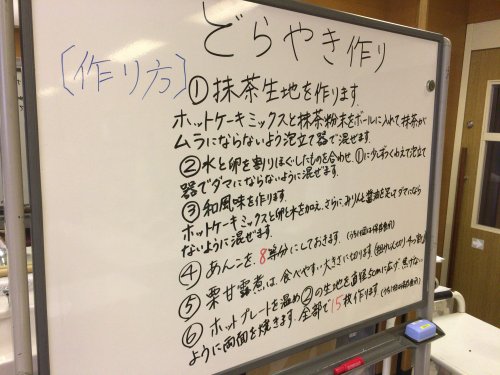 どらやき作り
〔作り方〕
①抹茶生地を作ります.
ホットケーキミックスと抹茶粉末をボールに入れて、抹茶が
ムラにならないよう泡立て器で混ぜます。
②水と卵を割りほぐしたものを合わせ、①に少しずつくわえて泡立て
器でダマにならないように混ぜます.
③和風味を作ります。
ホットケーキミックスと卵と水を加え、さらに、みりんと醤油を
ないように混ぜます.
④あんこを、8等分にしておきます.
⑤栗甘露煮は、食べやすい大きさに切ります.
⑥ホットプレートを温め②の生地を直径 に広げ、焦げない
ように両面を焼きます.全部で15枚作ります